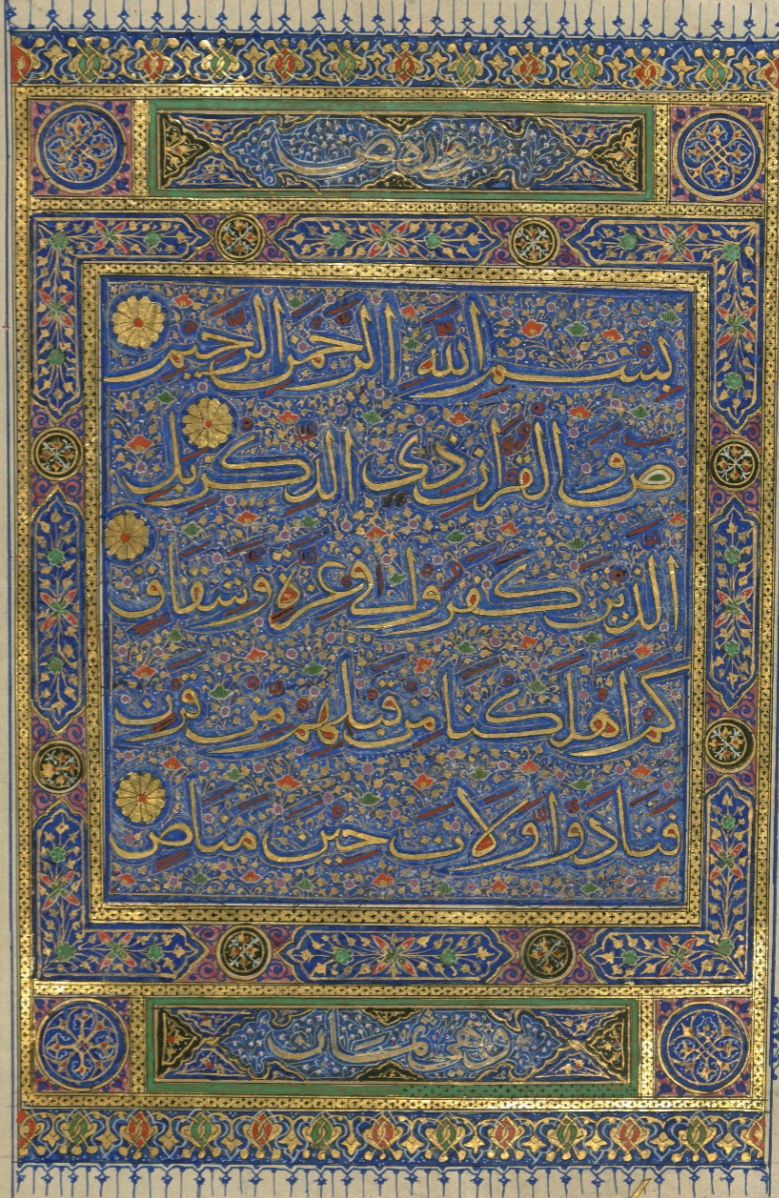 سورة ص
بِسْمِ اللَّهِ الرَّحْمَنِ الرَّحِيمِ
ص وَالْقُرْآنِ ذِي الذِّكْرِ بَلِ
الَّذِينَ كَفَرُوا فِي عِزَّةٍ وَشِقَاقٍ
كَمْ أَهْلَكْنَا مِنْ قَبْلِهِمْ مِنْ قَرْنٍ
فَنَادَوْا وَلَاتَ حِينَ مَنَاصٍ
وهي ثمان